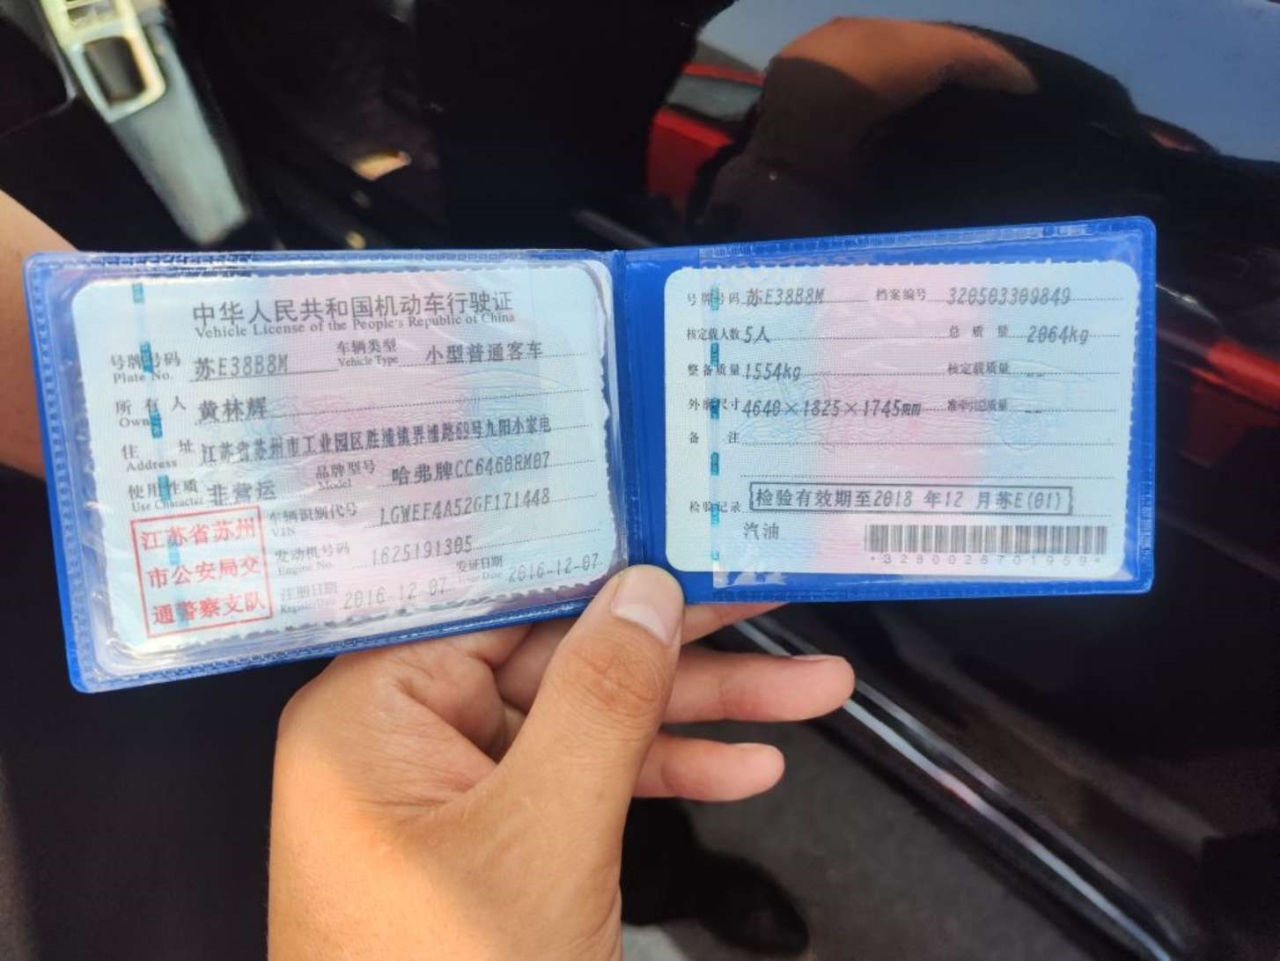 中华人民共和国机动车行驶证
Vehicle License of the People's Republic of China
号牌号码 苏E38B8M 车辆类型 小型普通客车
Plate No. Vehicle Type
所有人 黄林辉
Owner
住址 江苏省苏州市工业园区胜浦镇界浦路69号九阳小家电
Address
使用性质 非营运 品牌型号 哈弗牌CC6460RM07
Use Character Model
江苏省苏州
市公安局交
通警察支队
车辆识别代号 LGWEF4A52GF171448
VIN
发动机号码 1625191305
Engine No.
注册日期 2016-12-07 发证日期 2016-12-07
Register Date Issue Date
号牌号码 苏E38B8M 档案编号 320503309849
核定载人数 5人 总质量 2064kg
整备质量 1554kg 核定载质量 --
外廓尺寸 4640×1825×1745mm 准牵引总质量 --
备注
检验记录 检验有效期至2018 年12 月苏E(01)
汽油